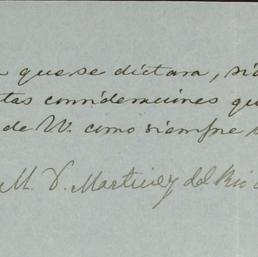 que se dictara,
tas consideraciones qu
de V. como siempre
M. V. Martinez del Rio